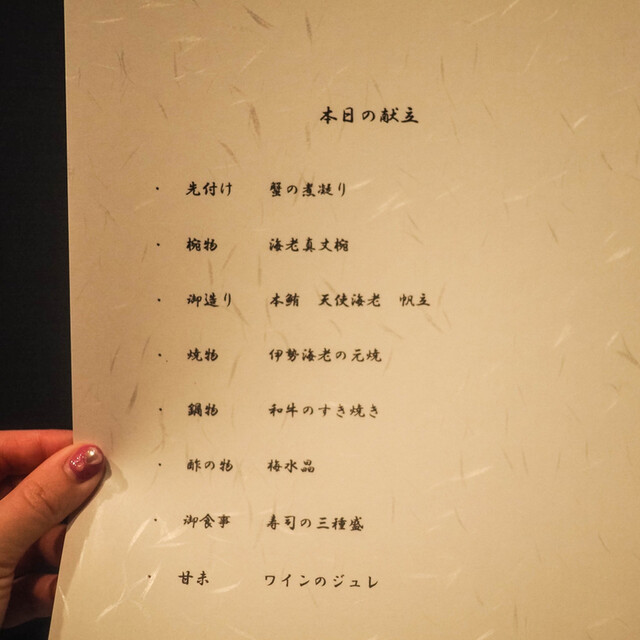 本日の献立
・ 先付け 蟹の煮凝り
・ 椀物 海老真丈椀
・ 御造り 本鮪 天使海老 帆立
・ 焼物 伊勢海老の元焼
・ 鍋物 和牛のすき焼き
・ 酢の物 梅水晶
・ 御食事 寿司の三種盛
・ 甘未 ワインのジュレ